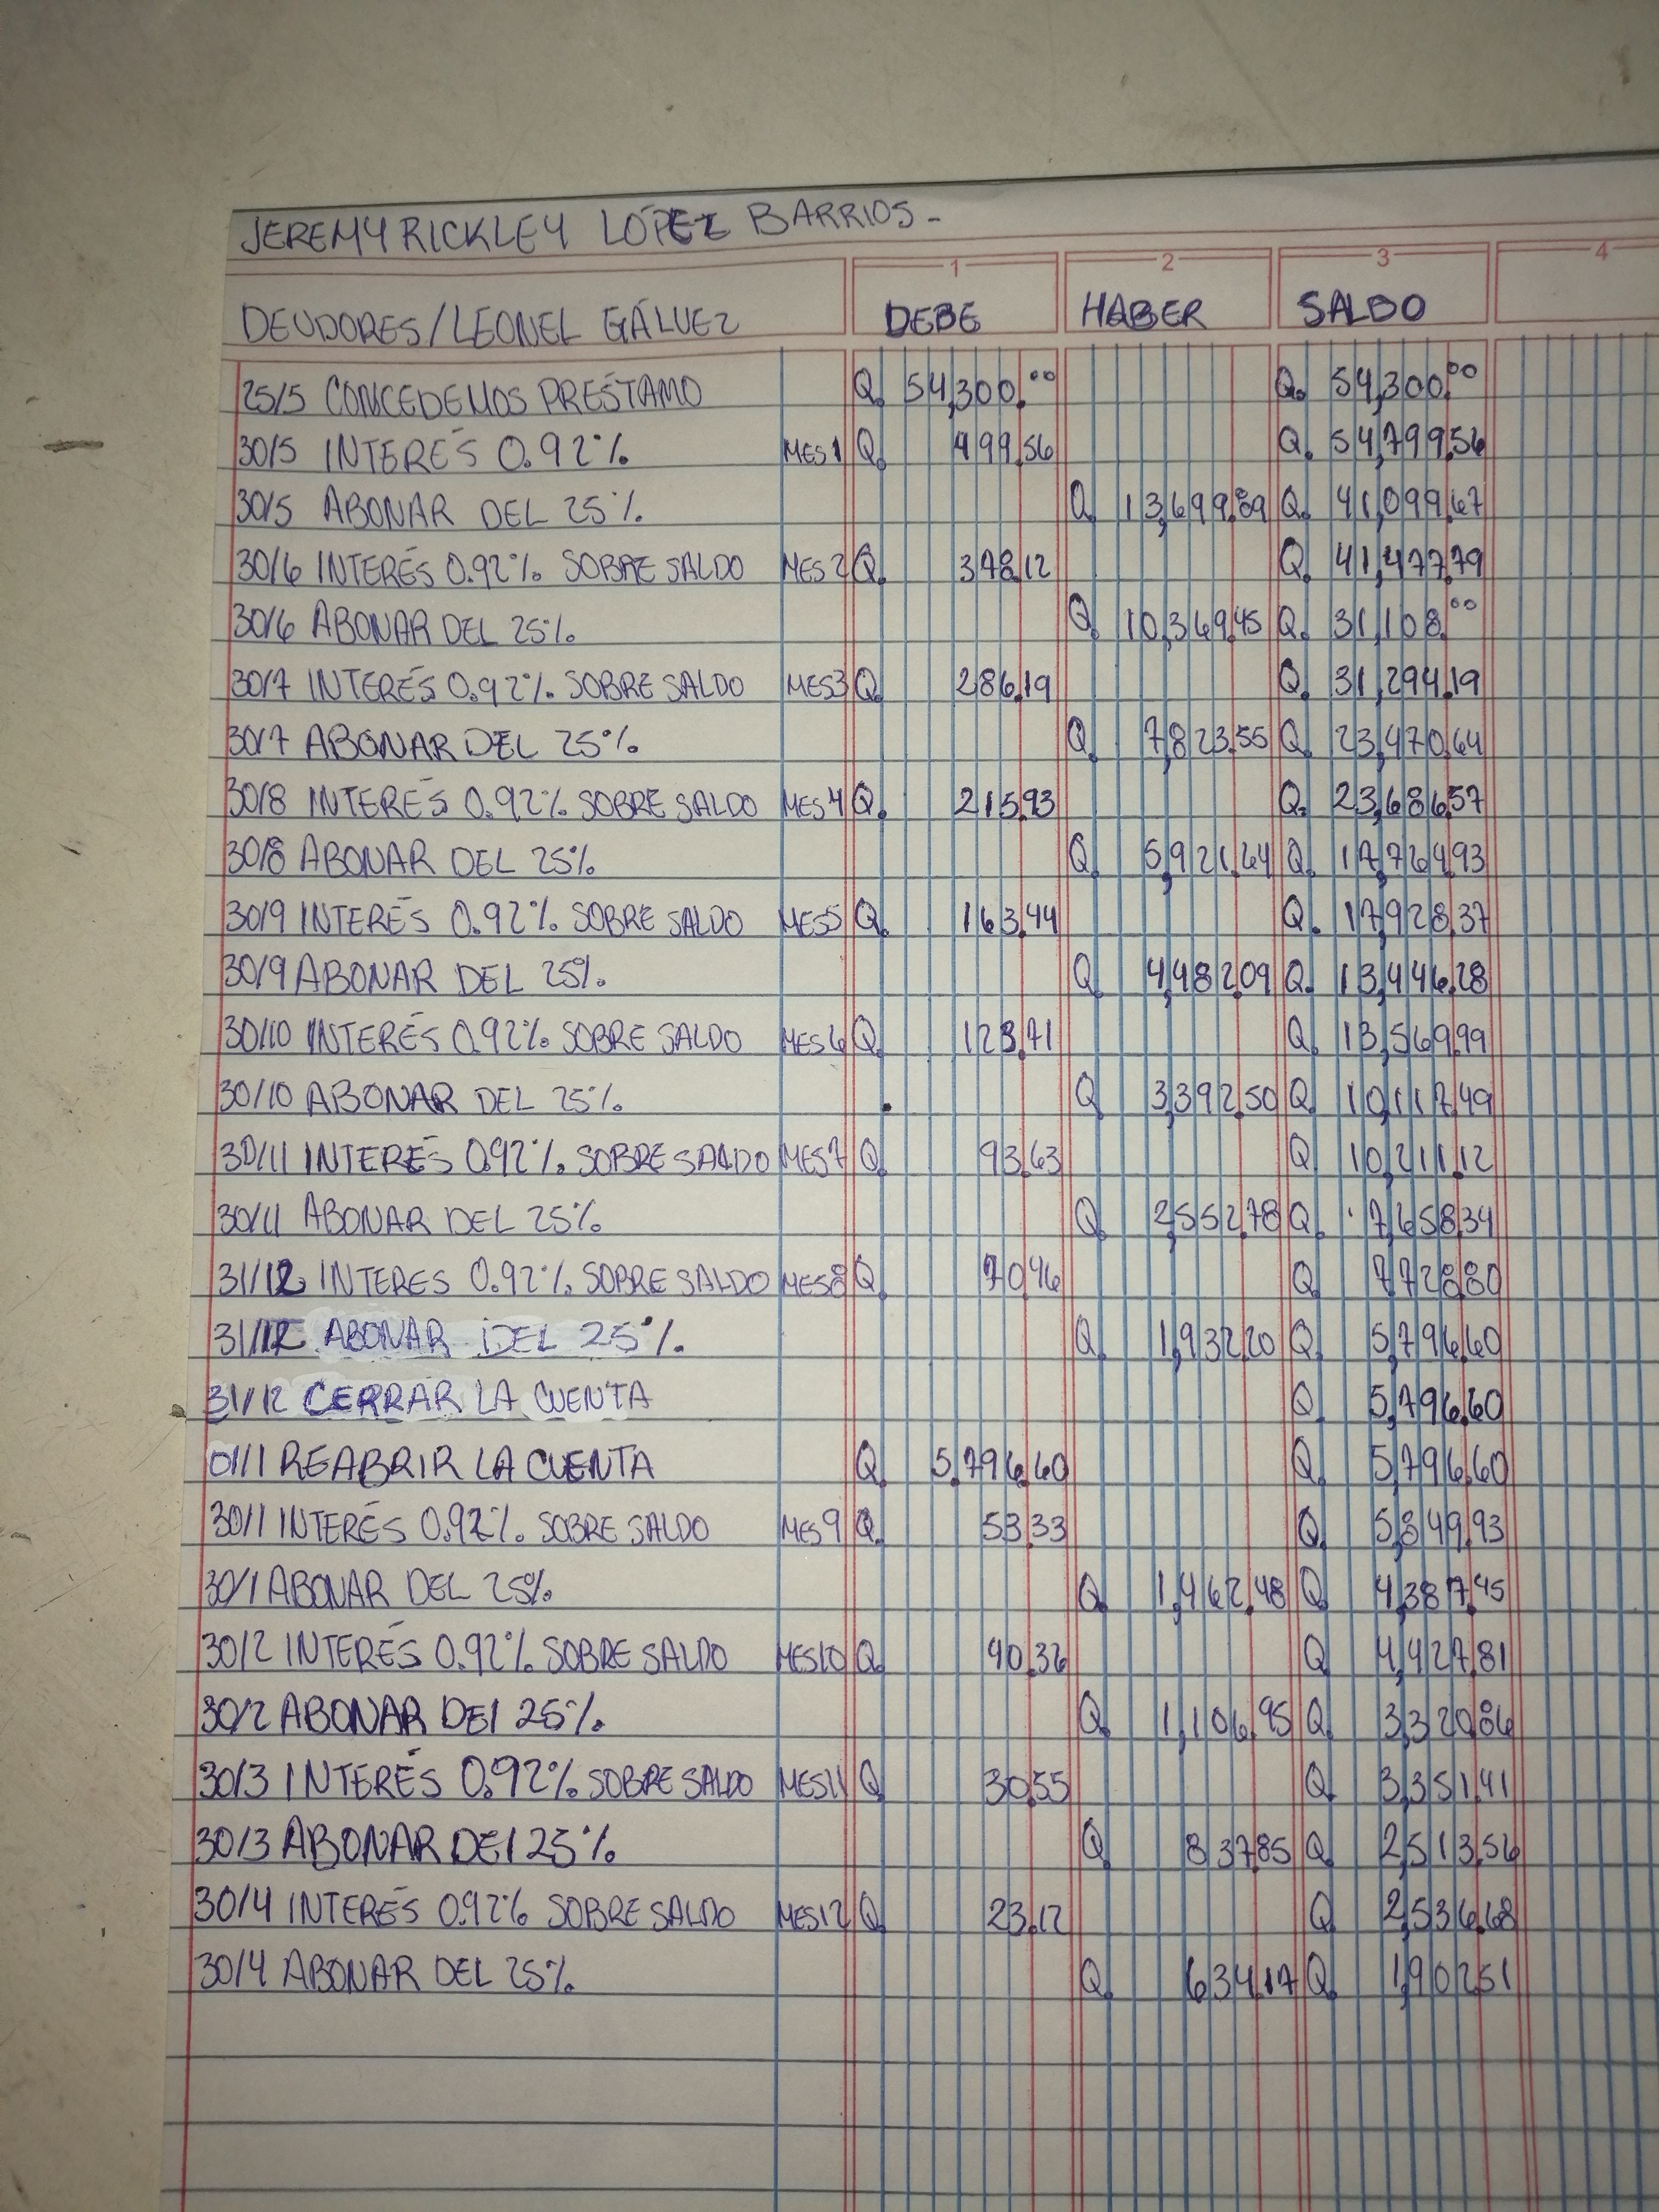 JEREMY RICKLEY LÓPEZ BARRIOS-
1 2 3 4
DEUDORES/LEONEL GÁLVEZ DEBE HABER SALDO
25/5 CONCEDEMOS PRÉSTAMO Q. 54,300.00 Q. 54,300.00
30/5 INTERÉS 0.92% MES 1 Q. 499.56 Q. 54,799.56
30/5 ABONAR DEL 25% Q. 13,699.89 Q. 41,099.67
30/6 INTERÉS 0.92% SOBRE SALDO MES 2 Q. 378.12 Q. 41,477.79
30/6 ABONAR DEL 25% Q. 10,369.45 Q. 31,108.00
30/7 INTERÉS 0.92% SOBRE SALDO MES 3 Q. 286.19 Q. 31,294.19
30/7 ABONAR DEL 25% Q. 7,823.55 Q. 23,470.64
30/8 INTERÉS 0.92% SOBRE SALDO MES 4 Q. 215.93 Q. 23,686.57
30/8 ABONAR DEL 25% Q. 5,921.64 Q. 17,764.93
30/9 INTERÉS 0.92% SOBRE SALDO MES 5 Q. 163.44 Q. 17,928.37
30/9 ABONAR DEL 25% Q. 4,482.09 Q. 13,446.28
30/10 INTERÉS 0.92% SOBRE SALDO MES 6 Q. 123.71 Q. 13,569.99
30/10 ABONAR DEL 25% Q. 3,392.50 Q. 10,117.49
30/11 INTERÉS 0.92% SOBRE SALDO MES 7 Q. 93.63 Q. 10,211.12
30/11 ABONAR DEL 25% Q. 2,552.78 Q. 7,658.34
31/12 INTERES 0.92% SOBRE SALDO MES 8 Q. 70.46 Q. 7,728.80
31/12 ABONAR DEL 25% Q. 1,932.20 Q. 5,796.60
31/12 CERRAR LA CUENTA Q. 5,796.60
01/1 REABRIR LA CUENTA Q. 5,796.60 Q. 5,796.60
30/1 INTERÉS 0.92% SOBRE SALDO MES 9 Q. 53.33 Q. 5,849.93
30/1 ABONAR DEL 25% Q. 1,462.48 Q. 4,387.45
30/2 INTERÉS 0.92% SOBRE SALDO MES 10 Q. 40.36 Q. 4,427.81
30/2 ABONAR DEl 25% Q. 1,106.95 Q. 3,320.86
30/3 INTERÉS 0.92% SOBRE SALDO MES 11 Q. 30.55 Q. 3,351.41
30/3 ABONAR DEl 25% Q. 837.85 Q. 2,513.56
30/4 INTERÉS 0.92% SOBRE SALDO MES 12 Q. 23.12 Q. 2,536.68
30/4 ABONAR DEL 25% Q. 634.17 Q. 1,902.51